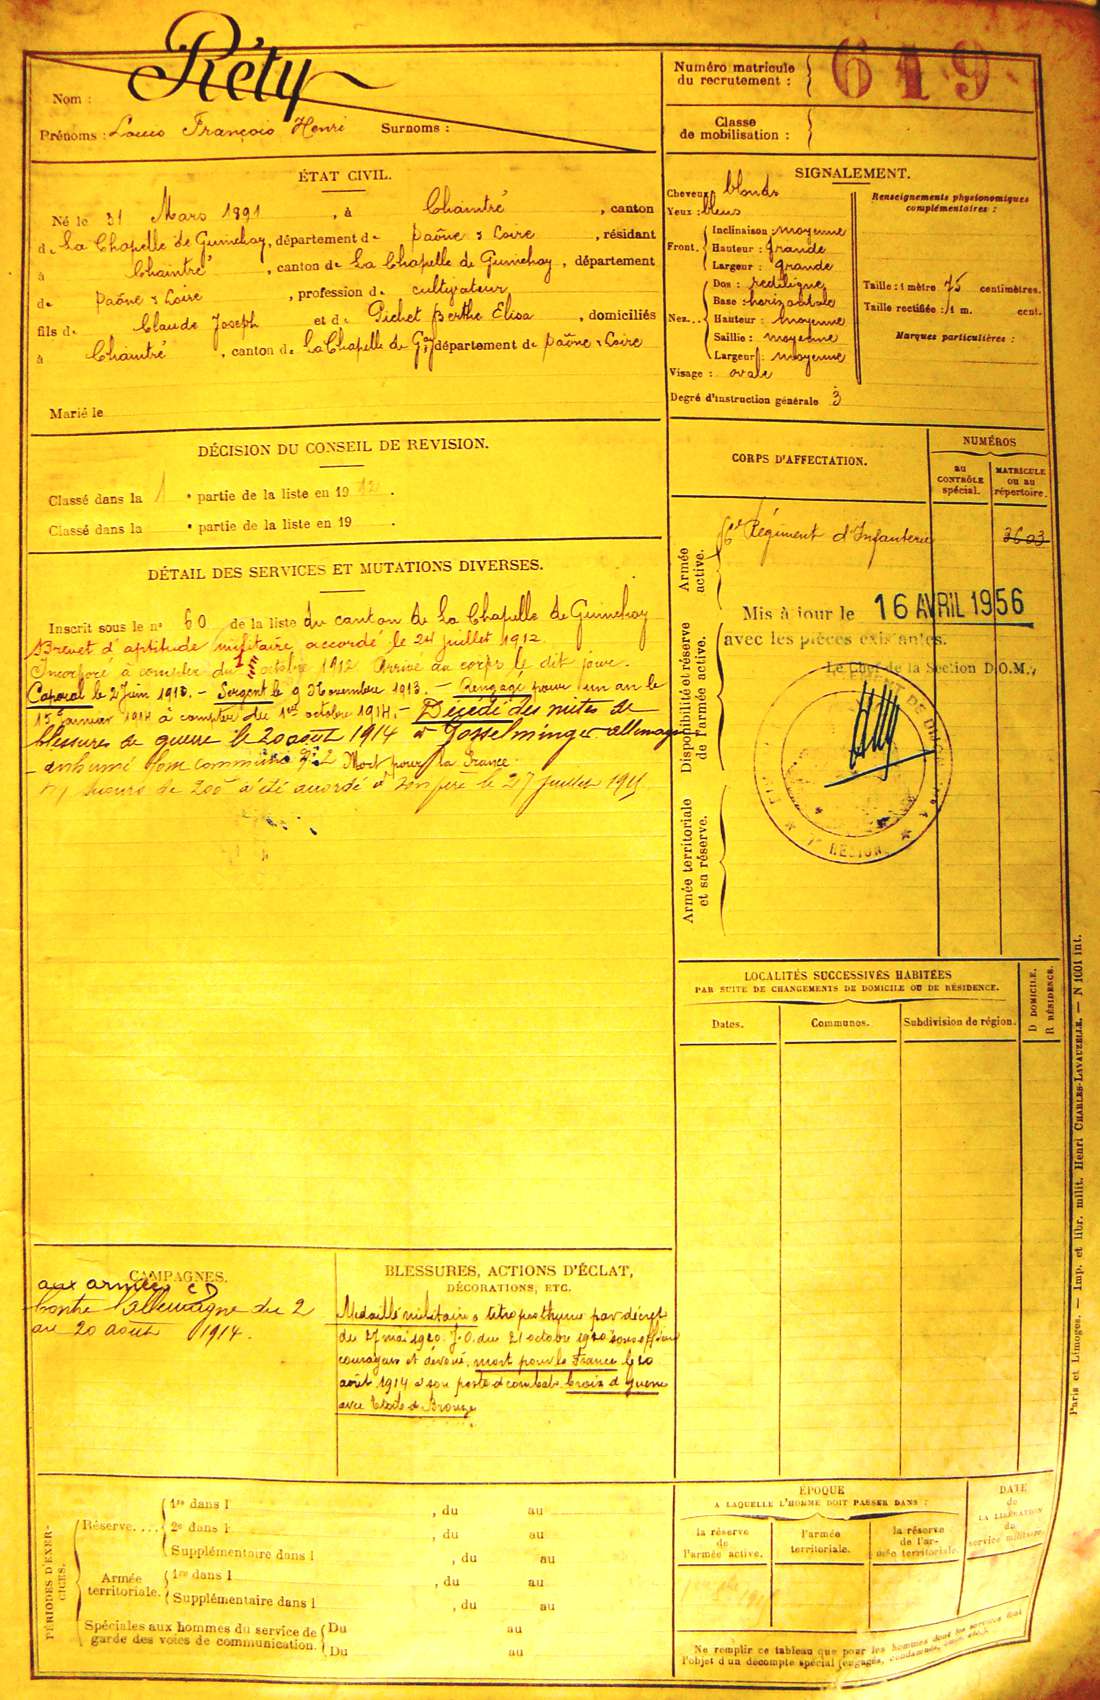 Réty
Nom :
Prénoms : Louis François Henri Surnoms :
Numéro matricule
du recrutement : 619
Classe
de mobilisation :
ÉTAT CIVIL.
Né le 31 Mars 1891, à Chaintré, canton
de La Chapelle de Guinchay, département de Saône & Loire, résidant
à Chaintré, canton de La Chapelle de Guinchay, département
de Saône & Loire, profession de cultivateur
fils de Claude Joseph et de Pichet Berthe Elisa, domiciliés
à Chaintré, canton de La Chapelle de Gay, département de Saône & Loire
Marié le
SIGNALEMENT.
Cheveux blonds
Yeux : bleus
Front. Inclinaison : moyenne
Hauteur : grande
Largeur : grande
Nez... Dos : rectiligne
Base : horizontale
Hauteur : moyenne
Saillie : moyenne
Largeur : moyenne
Visage : ovale
Degré d'instruction générale 3
Renseignements physionomiques
complémentaires :
Taille : 1 mètre 75 centimètres.
Taille rectifiée : 1 m. cent.
Marques particulières :
DÉCISION DU CONSEIL DE REVISION.
Classé dans la 1 e partie de la liste en 1912.
Classé dans la e partie de la liste en 19 .
DÉTAIL DES SERVICES ET MUTATIONS DIVERSES.
Inscrit sous le no 60 de la liste du canton de La Chapelle de Guinchay
Brevet d'aptitude militaire accordé le 24 juillet 1912
Incorporé à compter du octobre 1912 Arrivé au corps le dit jour.
Caporal le 2 Juin 1913. - Sergent le 9 Novembre 1913. - Rengagé pour un an le
15 janvier 1914 à compter du 1er octobre 1914. - Décédé des suites de
blessures de guerre le 20 août 1914 à Gosselminger allemagne
- inhumé fosse commune No 2 Mort pour la France.
secours de 200 a été accordé à son père le 27 juillet 1915
CORPS D'AFFECTATION.
NUMÉROS
au
CONTRÔLE
spécial.
MATRICULE
ou au
répertoire.
Armée
active.
Régiment d'Infanterie
3603
Mis à jour le 16 AVRIL 1956
avec les pièces existantes.
Le Chef de la Section D.O.M.,
Disponibilité et réserve
de l'armée active.
Armée territoriale
et sa réserve.
LOCALITÉS SUCCESSIVES HABITÉES
PAR SUITE DE CHANGEMENTS DE DOMICILE OU DE RÉSIDENCE.
Dates.
Communes.
Subdivision de région.
D DOMICILE.
R RÉSIDENCE.
CAMPAGNES.
aux armées CD
Contre l'allemagne du 2
au 20 août 1914.
BLESSURES, ACTIONS D'ÉCLAT,
DÉCORATIONS, ETC.
Médaille militaire à titre posthume par décret
du 27 mai 1920. J.O. du 21 octobre 1920 sous officier
courageux et dévoué. mort pour la France le 20
août 1914 à son poste de combat. Croix de guerre
avec Etoile de Bronze
PÉRIODES D'EXERCICES.
Réserve.... 1re dans l , du au
2e dans l , du au
Supplémentaire dans l , du au
Armée
territoriale. 1re dans l , du au
Supplémentaire dans l , du au
Spéciales aux hommes du service de
garde des voies de communication. Du au
Du au
ÉPOQUE
A LAQUELLE L'HOMME DOIT PASSER DANS :
la réserve
de
l'armée active.
l'armée
territoriale.
la réserve
de l'armée territoriale.
DATE
de
LA LIBÉRATION
du
service militaire.
Ne remplir ce tableau que pour les hommes dont les services font
l'objet d'un décompte spécial (engagés, condamnés, omis, etc.).
Paris et Limoges. — Imp. et libr. milit. Henri CHARLES-LAVAUZELLE. — N 1601 int.